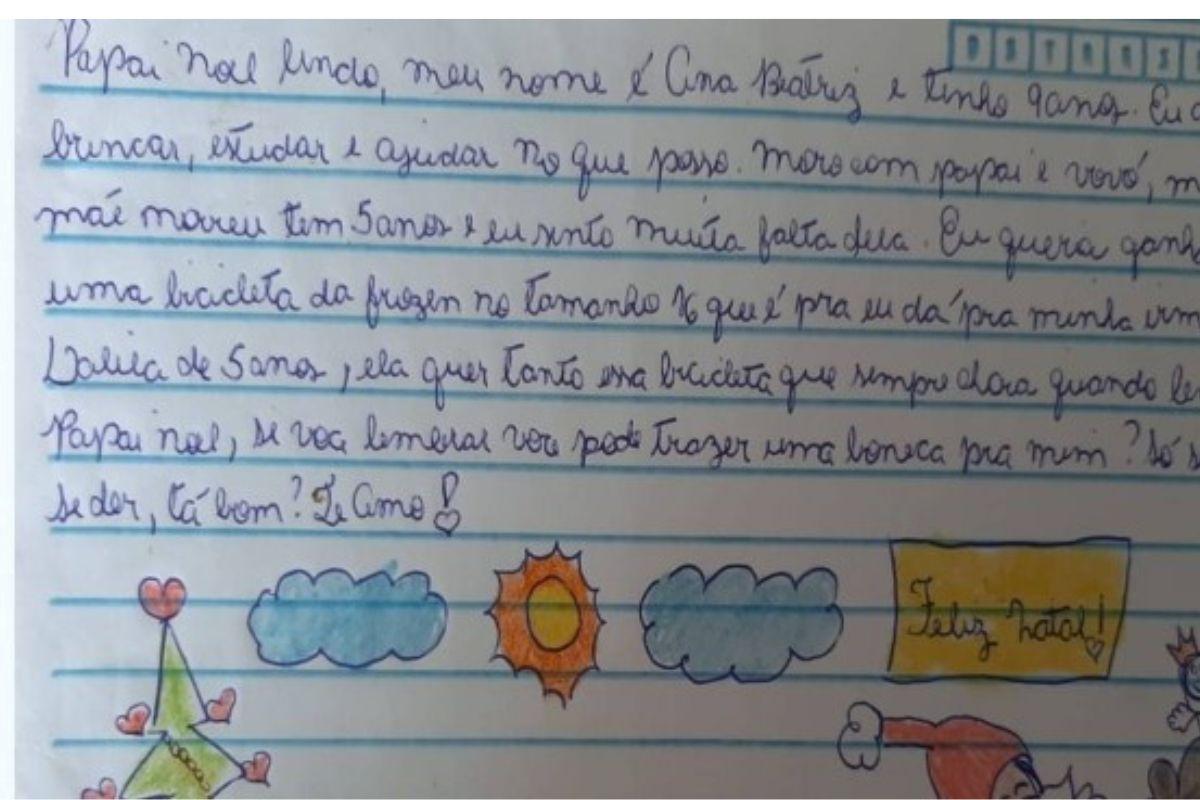 Papai noel lindo, meu nome é Ana Beátriz e tenho 9anos. Eu
brincar, estudar e ajudar no que posso. Moro com papai e vovó,
mãe morreu tem 5anos e eu sinto muita falta dela. Eu queria ganh
uma bicicleta da frozen no tamanho que é pra eu dá pra minha irm
Dalila de 5anos, ela quer tanto essa bicicleta que sempre chora quando
Papai noel, se voce lembrar voce pode trazer uma boneca pra mim? Só
se der, tá bom? Te Amo!
Feliz Natal!